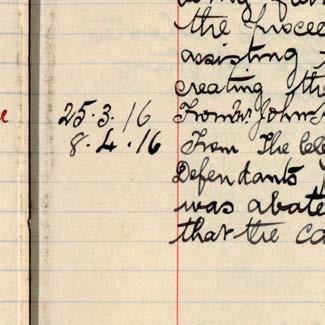 the Procee
assisting
creating the
25.3.16 From Mr. John
8.4.16 From The Cele
Defendants
was abate
that the ca